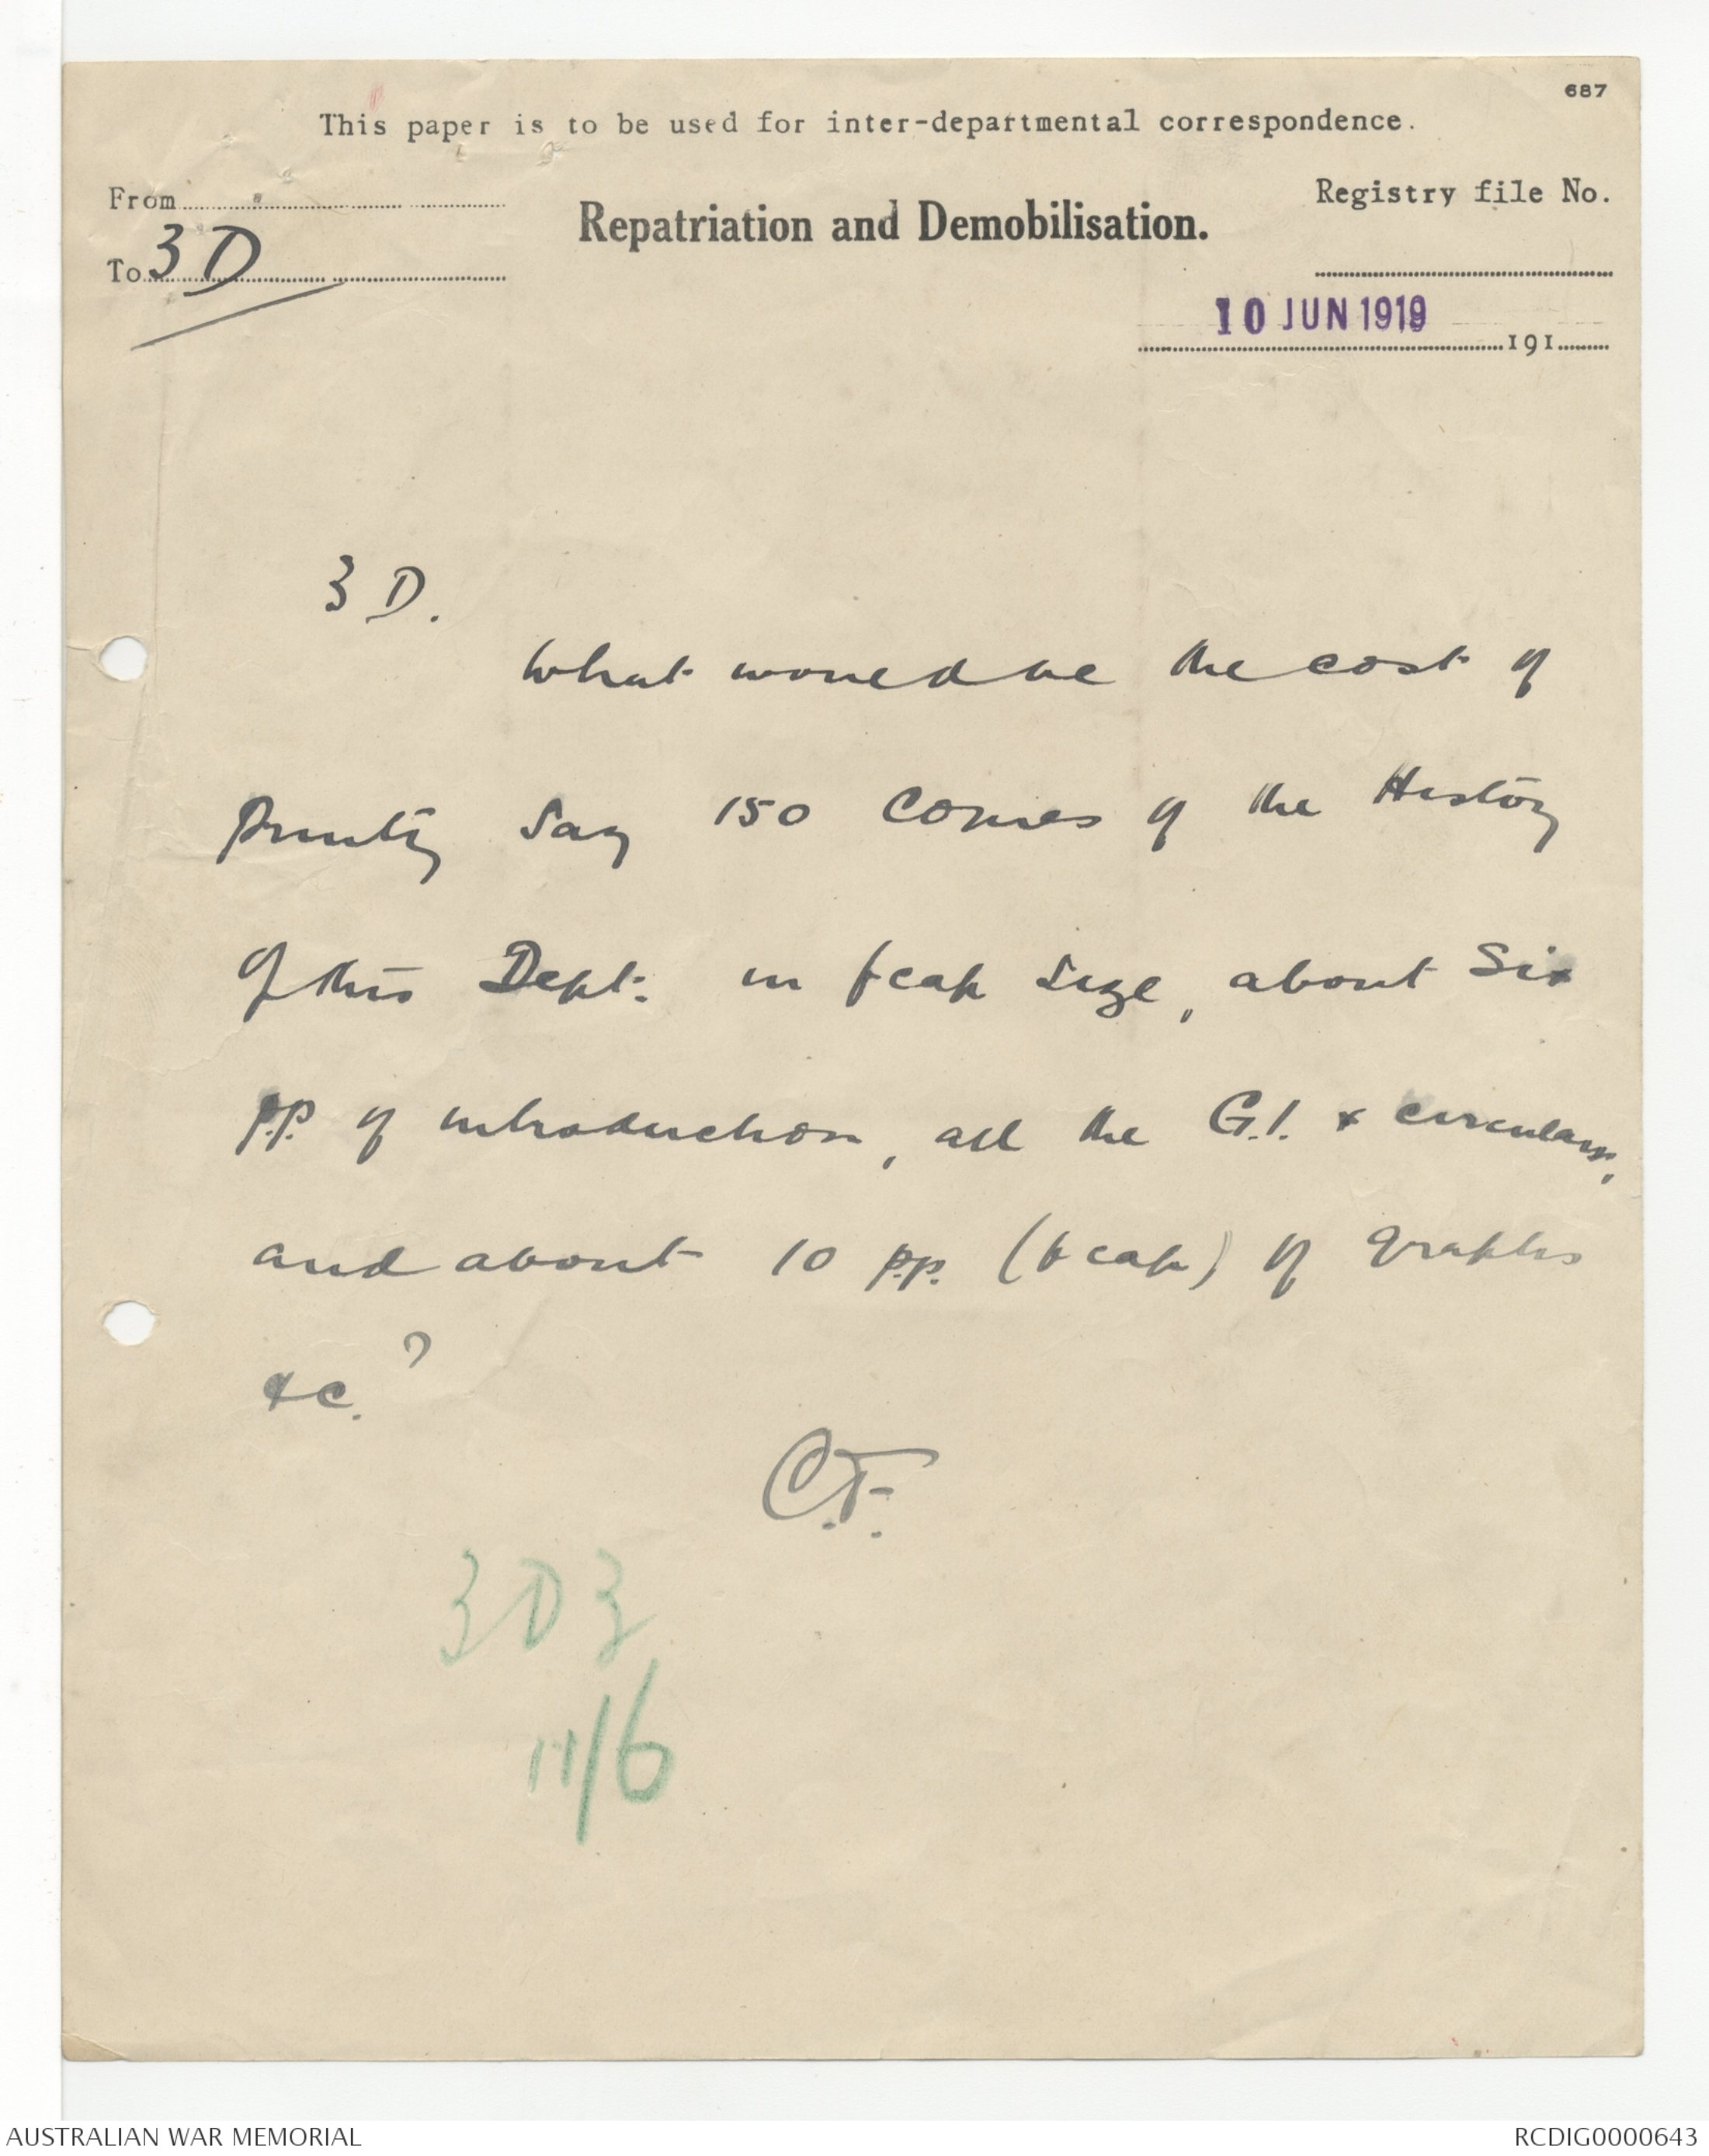 687
This paper is to be used for inter-departmental correspondence.
From
Repatriation and Demobilisation.
Registry file No.
To 3D
10 JUN 1919
191
3 D.
What would be the cost of
printing say 150 copies of the History
of this Dept. in fcap size, about six
pp. of introduction, all the G.I. & circulars,
and about 10 pp. (fcap) of graphs
&c.?
C.F.
3D3
11/6
AUSTRALIAN WAR MEMORIAL
RCDIG0000643